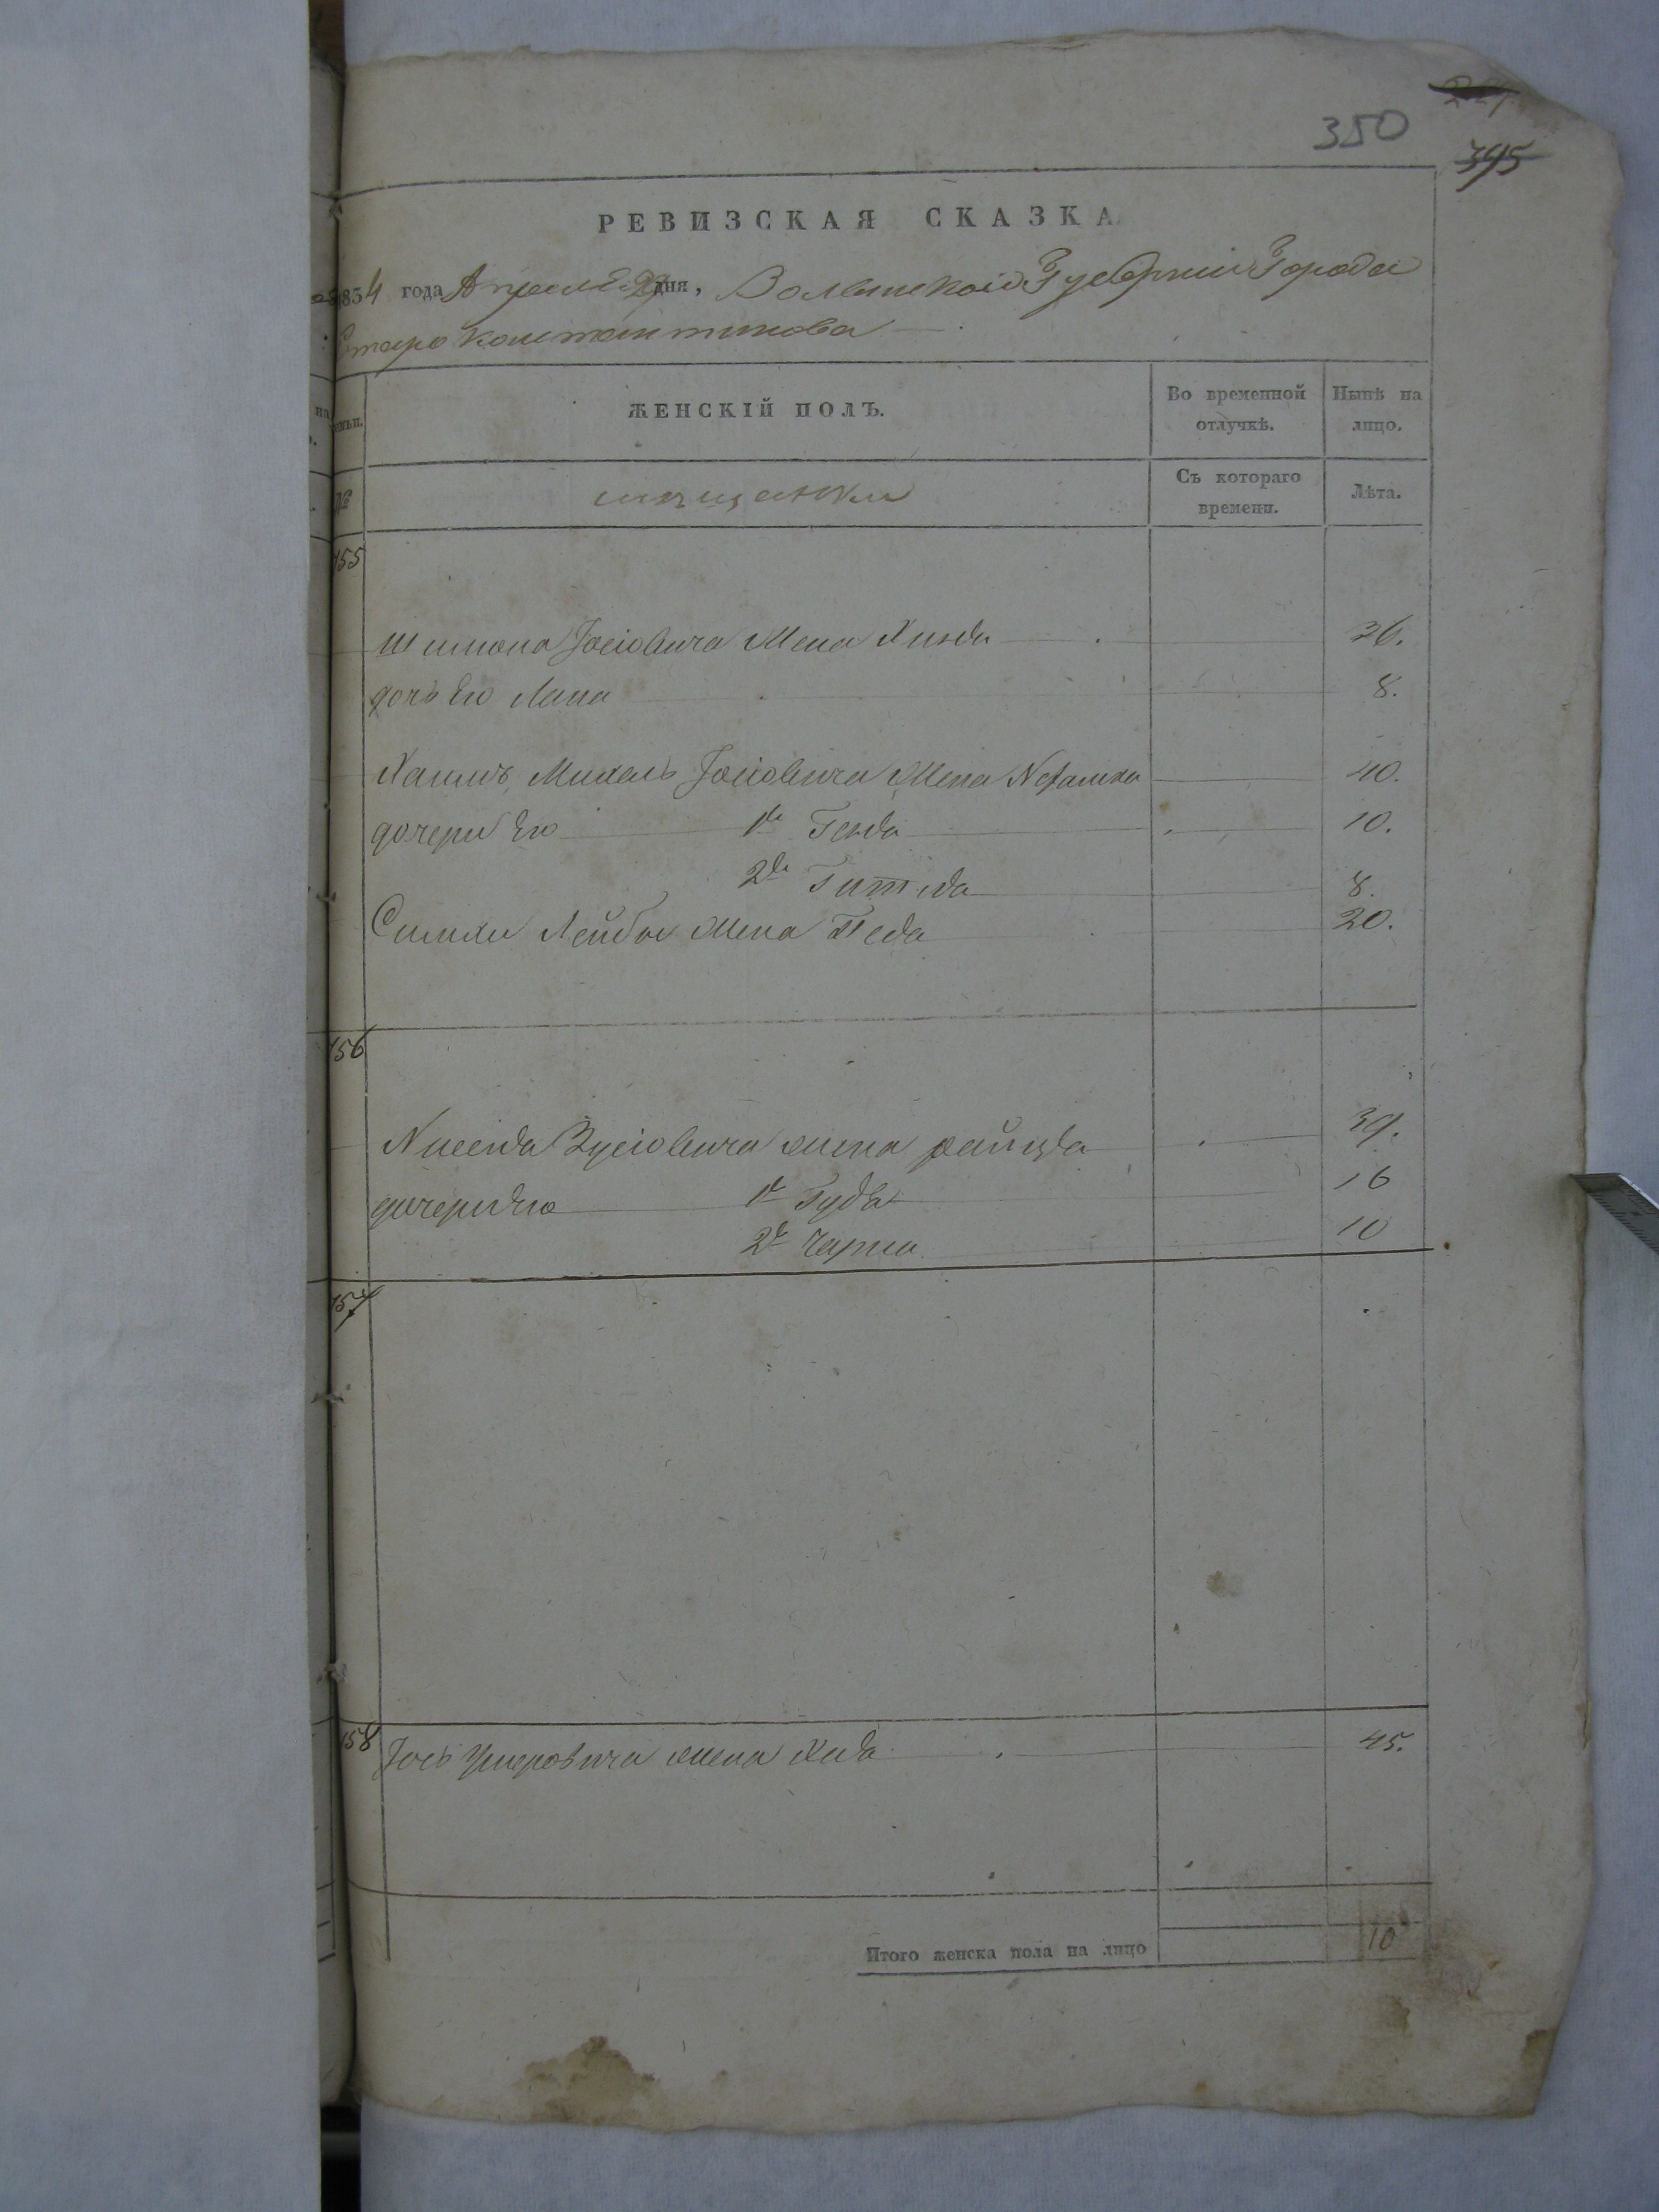 350
395
РЕВИЗСКАЯ СКАЗКА
1854 года Апреля 29 дня, Волынской Губернии Города
Старо Константинова
ЖЕНСКІЙ ПОЛЪ.
Во временной отлучкѣ.
Нынѣ на лицо.
мѣщанки
Съ котораго времени.
Лѣта.
155
Шимона Іосіовича Жена Хинда 36.
дочь Его Лана 8.
Хаимъ Михель Іосіовича Жена 40.
дочери Его 1я Генда 10.
2я 8.
Симхи Лейбы Жена Песа 20.
156
Зусіовича жена райзя 39.
дочери Его 1я Гудя 16
2я Чарна 10
157
158
Іось жена Хая 45.
Итого женска пола на лицо 10